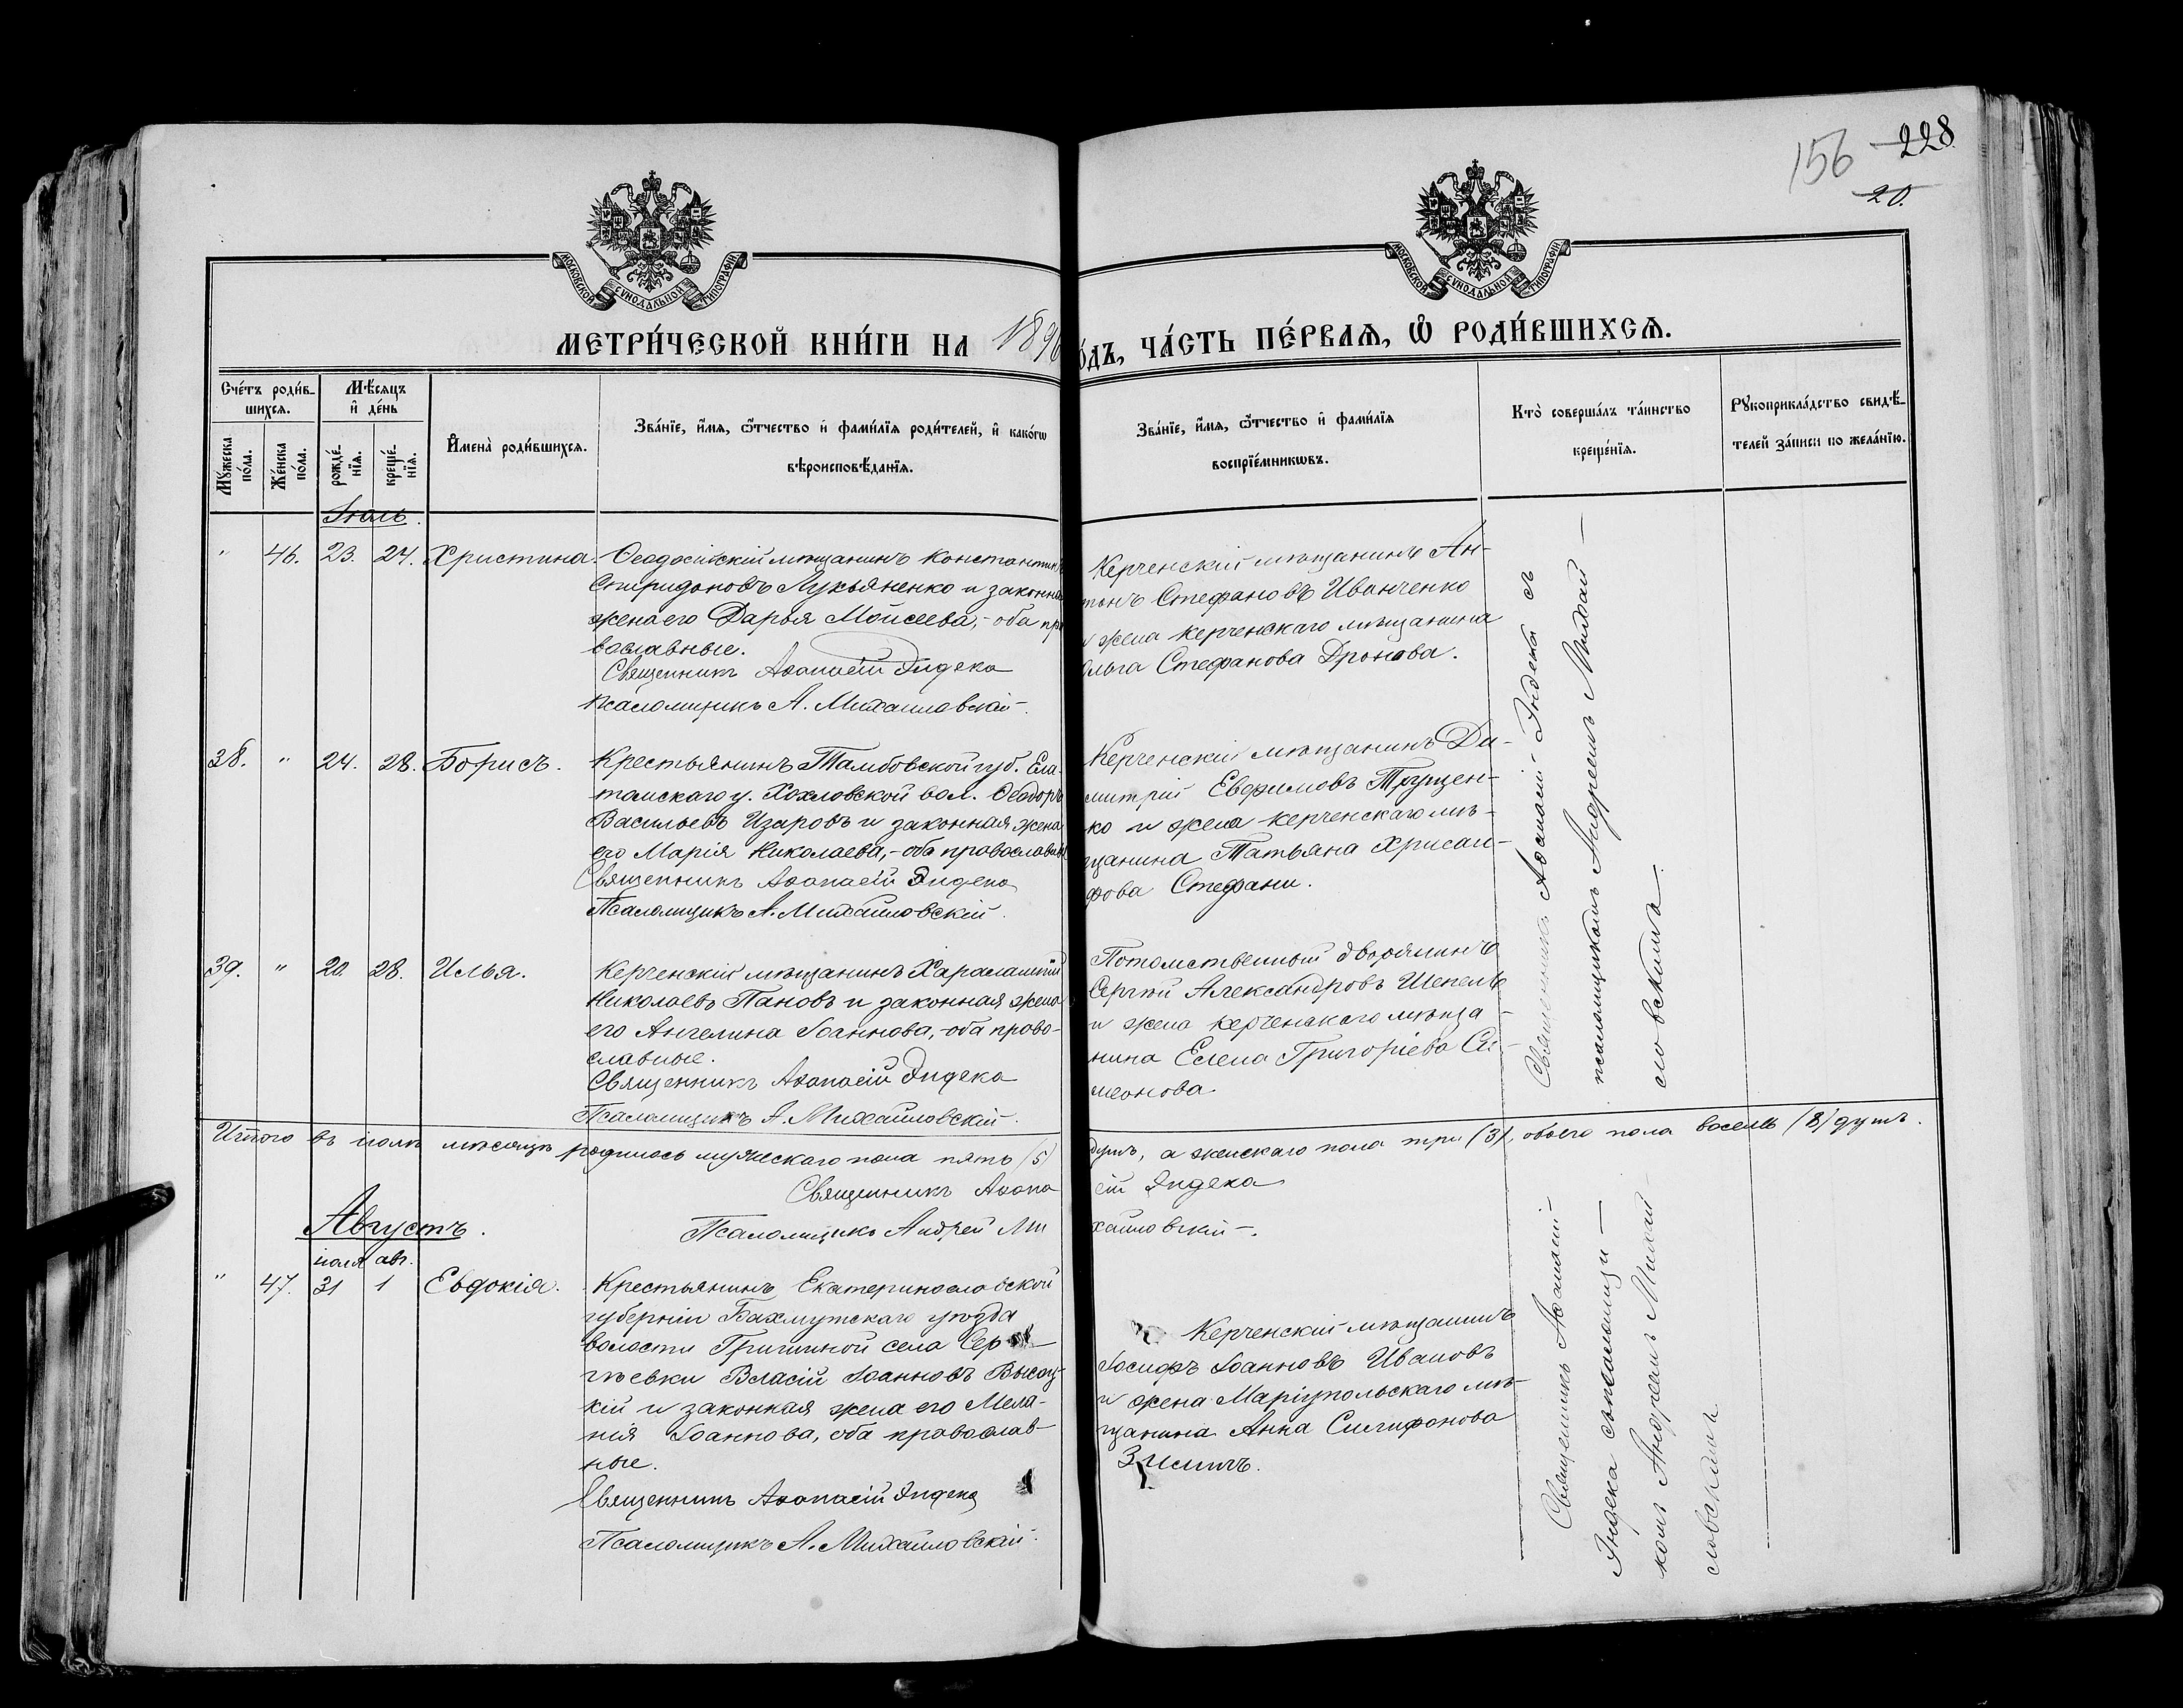 156 228
20.
МОСКОВСКОЙ СѴНОДАЛЬНОЙ ТИПОГРАФІИ
МОСКОВСКОЙ СѴНОДАЛЬНОЙ ТИПОГРАФІИ
МЕТРИ́ЧЕСКОЙ КНИ́ГИ НА 1896
О́ДЪ, ЧА́СТЬ ПЕ́РВАѦ, Ѡ҆ РОДИ́ВШИХСѦ.
Сче́тъ роди́в-
шихсѧ.
Мꙋ́жеска по́ла.
Же́нска по́ла.
Мѣ́сяцъ и҆ де́нь
рожде́-
нїѧ.
креще́-
нїѧ.
И҆мена̀ роди́вшихсѧ.
Зва́нїе, и҆́мѧ, ѻ҆́тчество и҆ фами́лїѧ роди́телей, и҆ како́гѡ
вѣроисповѣ́данїѧ.
Зва́нїе, и҆́мѧ, ѻ҆́тчество и҆ фами́лїѧ
воспрїе́мникѡвъ.
Кто̀ соверша́лъ та́инство
креще́нїѧ.
Рꙋкоприкла́дство свидѣ́-
телей за́писи по жела́нїю.
Іюль.
" 46. 23. 24. Христина. Ѳеодосійскій мѣщанинъ Константинъ
Спиридоновъ Лукьяненко и законная
жена его Дарья Моисеева,- оба пра
вославные.
Священникъ Аѳанасій Эндека
Псаломщикъ А. Михайловскій.
Керченскій мѣщанинъ Ан-
тонъ Стефановъ Иванченко
и жена керченскаго мѣщанина
Ольга Стефанова Дронова.
38. " 24. 28. Борисъ. Крестьянинъ Тамбовской губ. Ела-
томскаго у. Хохловской вол. Ѳеодоръ
Васильевъ Изаровъ и законная жена
его Марія Николаева,- оба православные
Священникъ Аѳанасій Эндека
Псаломщикъ А. Михайловскій.
Керченскій мѣщанинъ Ди-
митрій Евфимовъ Трущен-
ко и жена керченскаго мѣ-
щанина Татьяна Хрисан-
фова Стефани.
39. " 20. 28. Илья. Керченскій мѣщанинъ Харалампій
Николаевъ Пановъ и законная жена
его Ангелина Іоаннова,- оба право-
славные.
Священникъ Аѳанасій Эндека
Псаломщикъ А. Михайловскій.
Потомственный дворянинъ
Сергѣй Александровъ Шепель
и жена керченскаго мѣща-
нина Елена Григоріева Си-
меонова.
Священникъ Аѳанасій Эндека съ
псаломщикомъ Андреемъ Михай-
ловскимъ.
Итого въ іюлѣ мѣсяцѣ родилось мужескаго пола пять (5) душъ, а женскаго пола три (3), обоего пола восемь (8) душъ.
Священникъ Аѳанасій Эндека
Псаломщикъ Андрей Михайловскій.
Августъ.
іюля авг.
" 47. 31 1 Евдокія. Крестьянинъ Екатеринославской
губерніи Бахмутскаго уѣзда
волости Гришиной села Сер-
гѣевки Власій Іоанновъ Высоц-
кій и законная жена его Мела-
нія Іоаннова, оба православ-
ные.
Священникъ Аѳанасій Эндека
Псаломщикъ А. Михайловскій.
Керченскій мѣщанинъ
Іосифъ Іоанновъ Ивановъ
и жена Маріупольскаго мѣ-
щанина Анна
Священникъ Аѳанасій
Эндека
комъ Андреемъ Михай-
ловскимъ.